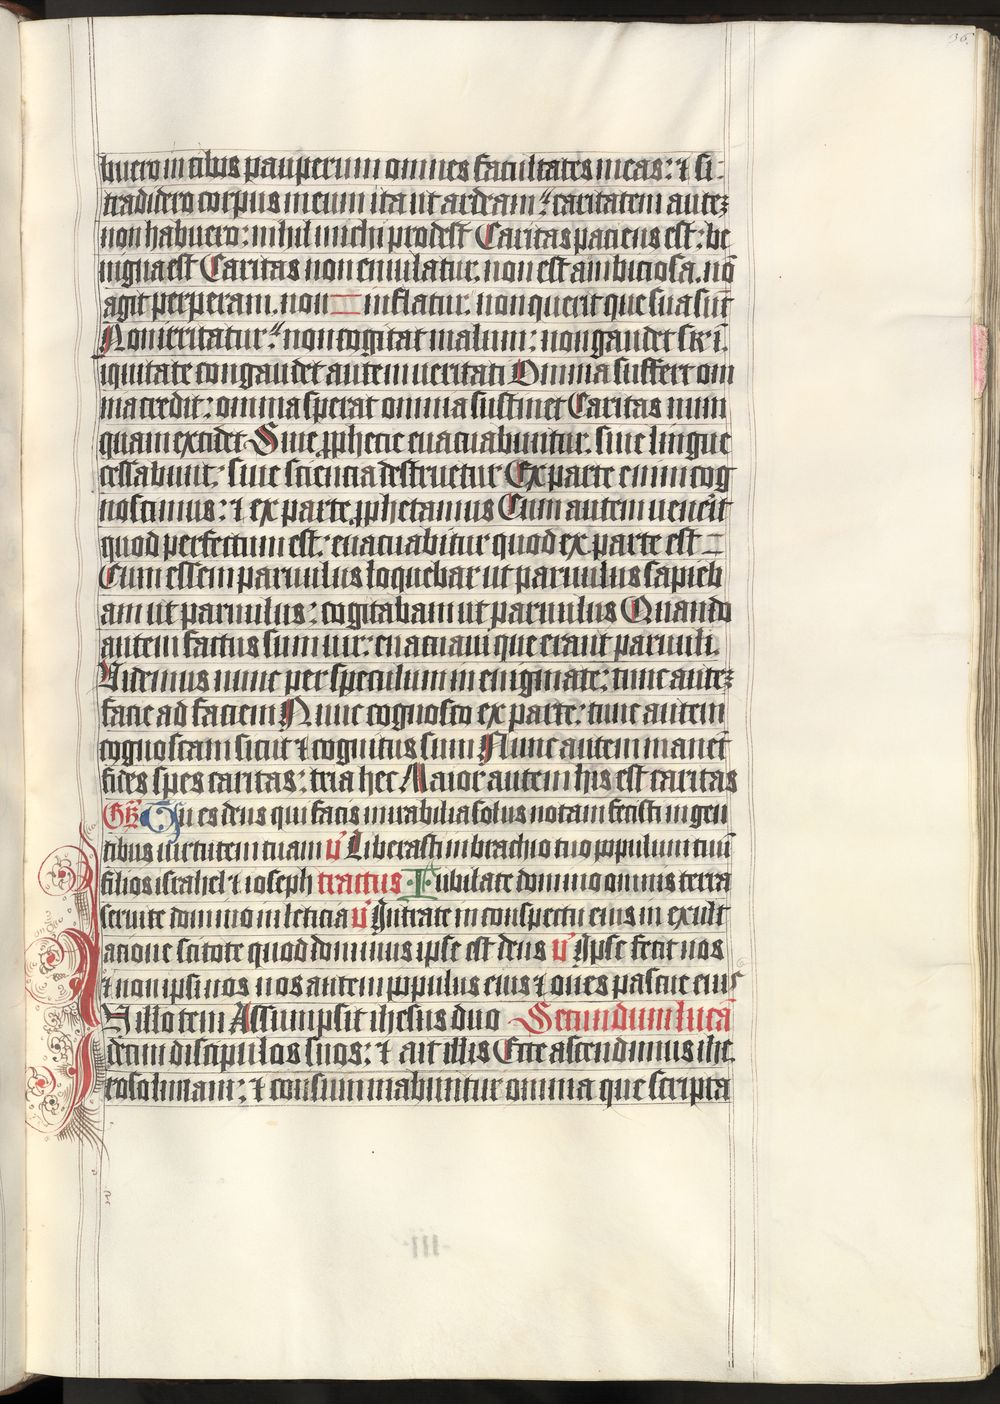 36.
buero in cibos pauperum omnes facultates meas: ⁊ si
tradidero corpus meum ita ut ardeam: caritatem autez
non habuero: nihil michi prodest Caritas paciens est: be
nigna est Caritas non emulatur. non est ambiciosa. nō
agit perperam. non inflatur. non querit que sua sūt
Non irritatur: non cogitat malum: non gaudet sr̄ i.
iquitate congaudet autem ueritati Omnia suffert om
nia credit: omnia sperat omnia sustinet Caritas num
quam excidet Siue ꝓphecie euacuabuntur. siue lingue
cessabunt: siue sciencia destruetur Ex parte enim cog
noscimus: ⁊ ex parte ꝓphetamus Cum autem uenerit
quod perfectum est: euacuabitur quod ex parte est
Cum essem paruulus loquebar ut paruulus sapieb
am ut paruulus: cogitabam ut paruulus Quando
autem factus sum uir: euacuaui que erant paruuli.
Videmus nunc per speculum in enigmate: tunc autez
facie ad faciem Nunc cognosco ex parte: tunc autem
cognoscam sicut ⁊ cognitus sum Nunc autem manet
fides spes caritas: tria hec Maior autem his est caritas
Gr̄ Tu es deus qui facis mirabilia solus notam fecisti in gen
tibus uirtutem tuam v̄ Liberasti in brachio tuo populum tuū
filios israhel ⁊ ioseph tractus Iubilate domino omnis terra
seruite domino in leticia v̄ Intrate in conspectu eius in exult
acione scitote quod dominus ipse est deus v̄ Ipse fecit nos
⁊ non ipsi nos nos autem populus eius ⁊ oues pascue eius
In illo tem Assumpsit ihesus duo Secundum lucā
decim discipulos suos: ⁊ ait illis Ecce ascendimus ihe
rosolimam: ⁊ consummabuntur omnia que scripta